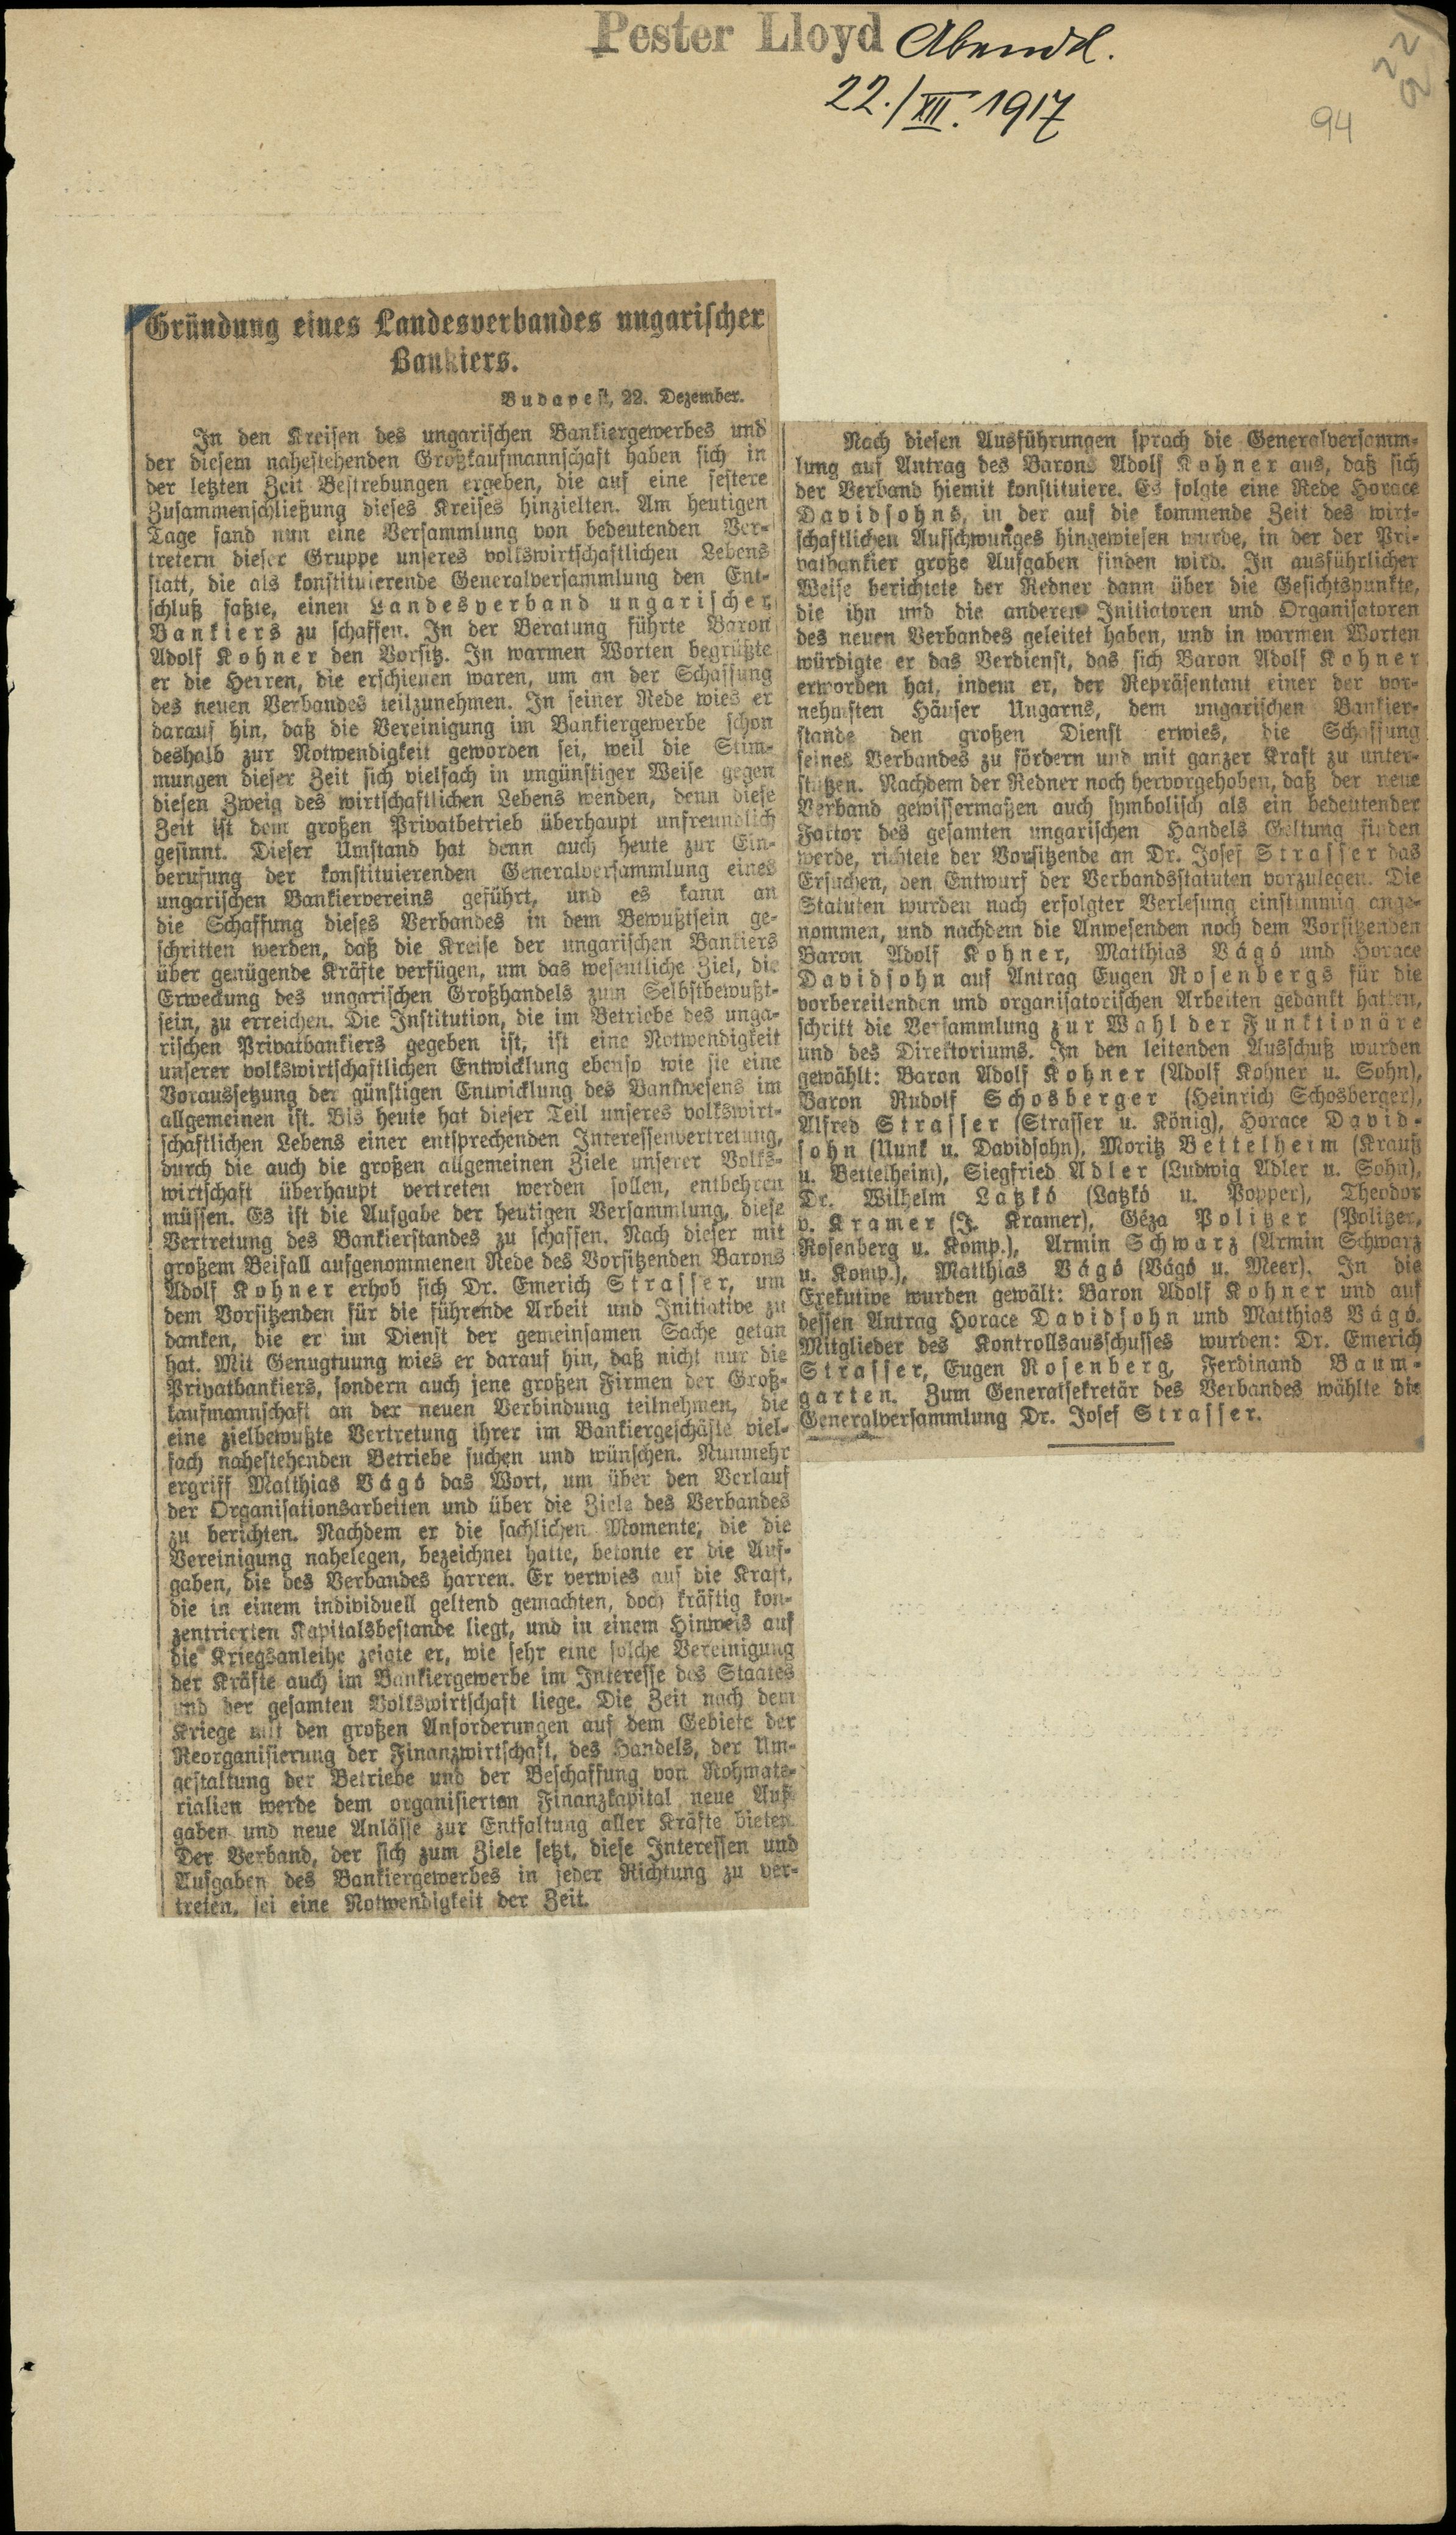 Pester Lloyd Abendbl.
22./XII. 1917
94
Gründung eines Landesverbandes ungarischer
Bankiers.
Budapest, 22. Dezember.
In den Kreisen des ungarischen Bankiergewerbes und
der diesem nahestehenden Großkaufmannschaft haben sich in
der letzten Zeit Bestrebungen ergeben, die auf eine festere
Zusammenschließung dieses Kreises hinzielten. Am heutigen
Tage fand nun eine Versammlung von bedeutenden Ver-
tretern dieser Gruppe unseres volkswirtschaftlichen Lebens
statt, die als konstituierende Generalversammlung den Ent-
schluß faßte, einen Landesverband ungarischer
Bankiers zu schaffen. In der Beratung führte Baron
Adolf Kohner den Vorsitz. In warmen Worten begrüßte
er die Herren, die erschienen waren, um an der Schaffung
des neuen Verbandes teilzunehmen. In seiner Rede wies er
darauf hin, daß die Vereinigung im Bankiergewerbe schon
deshalb zur Notwendigkeit geworden sei, weil die Stim-
mungen dieser Zeit sich vielfach in ungünstiger Weise gegen
diesen Zweig des wirtschaftlichen Lebens wenden, denn diese
Zeit ist dem großen Privatbetrieb überhaupt unfreundlich
gesinnt. Dieser Umstand hat denn auch heute zur Ein-
berufung der konstituierenden Generalversammlung eines
ungarischen Bankiervereins geführt, und es kann an
die Schaffung dieses Verbandes in dem Bewußtsein ge-
schritten werden, daß die Kreise der ungarischen Bankiers
über genügende Kräfte verfügen, um das wesentliche Ziel, die
Erweckung des ungarischen Großhandels zum Selbstbewußt-
sein, zu erreichen. Die Institution, die im Betriebe des unga-
rischen Privatbankiers gegeben ist, ist eine Notwendigkeit
unserer volkswirtschaftlichen Entwicklung ebenso wie sie eine
Voraussetzung der günstigen Entwicklung des Bankwesens im
allgemeinen ist. Bis heute hat dieser Teil unseres volkswirt-
schaftlichen Lebens einer entsprechenden Interessenvertretung,
durch die auch die großen allgemeinen Ziele unserer Volks-
wirtschaft überhaupt vertreten werden sollen, entbehren
müssen. Es ist die Aufgabe der heutigen Versammlung, diese
Vertretung des Bankierstandes zu schaffen. Nach dieser mit
großem Beifall aufgenommenen Rede des Vorsitzenden Barons
Adolf Kohner erhob sich Dr. Emerich Strasser, um
dem Vorsitzenden für die führende Arbeit und Initiative zu
danken, die er im Dienst der gemeinsamen Sache getan
hat. Mit Genugtuung wies er darauf hin, daß nicht nur die
Privatbankiers, sondern auch jene großen Firmen der Groß-
kaufmannschaft an der neuen Verbindung teilnehmen, die
eine zielbewußte Vertretung ihrer im Bankiergeschäfte viel-
fach nahestehenden Betriebe suchen und wünschen. Nunmehr
ergriff Matthias Vágó das Wort, um über den Verlauf
der Organisationsarbeiten und über die Ziele des Verbandes
zu berichten. Nachdem er die sachlichen Momente, die die
Vereinigung nahelegen, bezeichnet hatte, betonte er die Auf-
gaben, die des Verbandes harren. Er verwies auf die Kraft,
die in einem individuell geltend gemachten, doch kräftig kon-
zentrierten Kapitalsbestande liegt, und in einem Hinweis auf
die Kriegsanleihe zeigte er, wie sehr eine solche Vereinigung
der Kräfte auch im Bankiergewerbe im Interesse des Staates
und der gesamten Volkswirtschaft liege. Die Zeit nach dem
Kriege mit den großen Anforderungen auf dem Gebiete der
Reorganisierung der Finanzwirtschaft, des Handels, der Um-
gestaltung der Betriebe und der Beschaffung von Rohmate-
rialien werde dem organisierten Finanzkapital neue Auf-
gaben und neue Anlässe zur Entfaltung aller Kräfte bieten.
Der Verband, der sich zum Ziele setzt, diese Interessen und
Aufgaben des Bankiergewerbes in jeder Richtung zu ver-
treten, sei eine Notwendigkeit der Zeit.
Nach diesen Ausführungen sprach die Generalversamm-
lung auf Antrag des Barons Adolf Kohner aus, daß sich
der Verband hiemit konstituiere. Es folgte eine Rede Horace
Davidsohns, in der auf die kommende Zeit des wirt-
schaftlichen Aufschwunges hingewiesen wurde, in der der Pri-
vatbankier große Aufgaben finden wird. In ausführlicher
Weise berichtete der Redner dann über die Gesichtspunkte,
die ihn und die anderen Initiatoren und Organisatoren
des neuen Verbandes geleitet haben, und in warmen Worten
würdigte er das Verdienst, das sich Baron Adolf Kohner
erworben hat, indem er, der Repräsentant einer der vor-
nehmsten Häuser Ungarns, dem ungarischen Bankier-
stande den großen Dienst erwies, die Schaffung
seines Verbandes zu fördern und mit ganzer Kraft zu unter-
stützen. Nachdem der Redner noch hervorgehoben, daß der neue
Verband gewissermaßen auch symbolisch als ein bedeutender
Faktor des gesamten ungarischen Handels Geltung finden
werde, richtete der Vorsitzende an Dr. Josef Strasser das
Ersuchen, den Entwurf der Verbandsstatuten vorzulegen. Die
Statuten wurden nach erfolgter Verlesung einstimmig ange-
nommen, und nachdem die Anwesenden noch dem Vorsitzenden
Baron Adolf Kohner, Matthias Vágó und Horace
Davidsohn auf Antrag Eugen Rosenbergs für die
vorbereitenden und organisatorischen Arbeiten gedankt hatten,
schritt die Versammlung zur Wahl der Funktionäre
und des Direktoriums. In den leitenden Ausschuß wurden
gewählt: Baron Adolf Kohner (Adolf Kohner u. Sohn),
Baron Rudolf Schosberger (Heinrich Schosberger),
Alfred Strasser (Strasser u. König), Horace David-
sohn (Nunk u. Davidsohn), Moritz Bettelheim (Krauß
u. Bettelheim), Siegfried Adler (Ludwig Adler u. Sohn),
Dr. Wilhelm Latzkó (Latzkó u. Popper), Theodor
v. Kramer (J. Kramer), Géza Politzer (Politzer,
Rosenberg u. Komp.), Armin Schwarz (Armin Schwarz
u. Komp.), Matthias Vágó (Vágó u. Meer). In die
Exekutive wurden gewält: Baron Adolf Kohner und auf
dessen Antrag Horace Davidsohn und Matthias Vágó.
Mitglieder des Kontrollsausschusses wurden: Dr. Emerich
Strasser, Eugen Rosenberg, Ferdinand Baum-
garten. Zum Generalsekretär des Verbandes wählte die
Generalversammlung Dr. Josef Strasser.